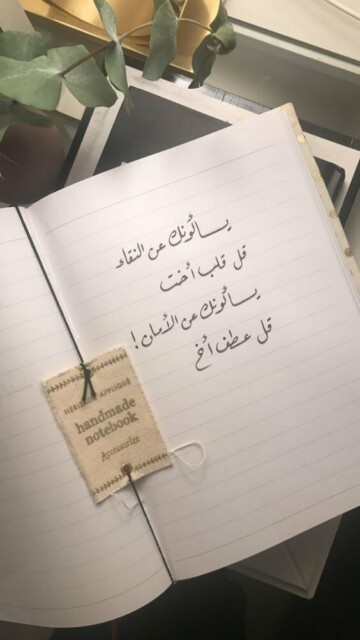 يسألونك عن النقاء
قل قلب أخت
يسألونك عن الأمان !
قل عطف أخ
APPLIQUÉ
handmade
notebook
Accessorize